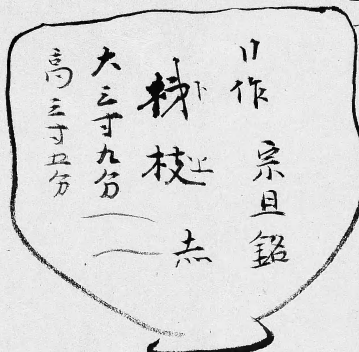 作 宗旦銘
枝 赤
大三寸九分
高三寸五分